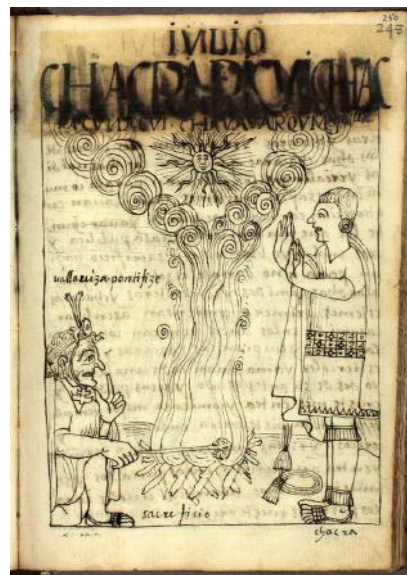 250
248
IVLIO
CHACRARICVICHAC
CHAVAVARQVM
uallauiza·pontifize
sacreficio
chacra